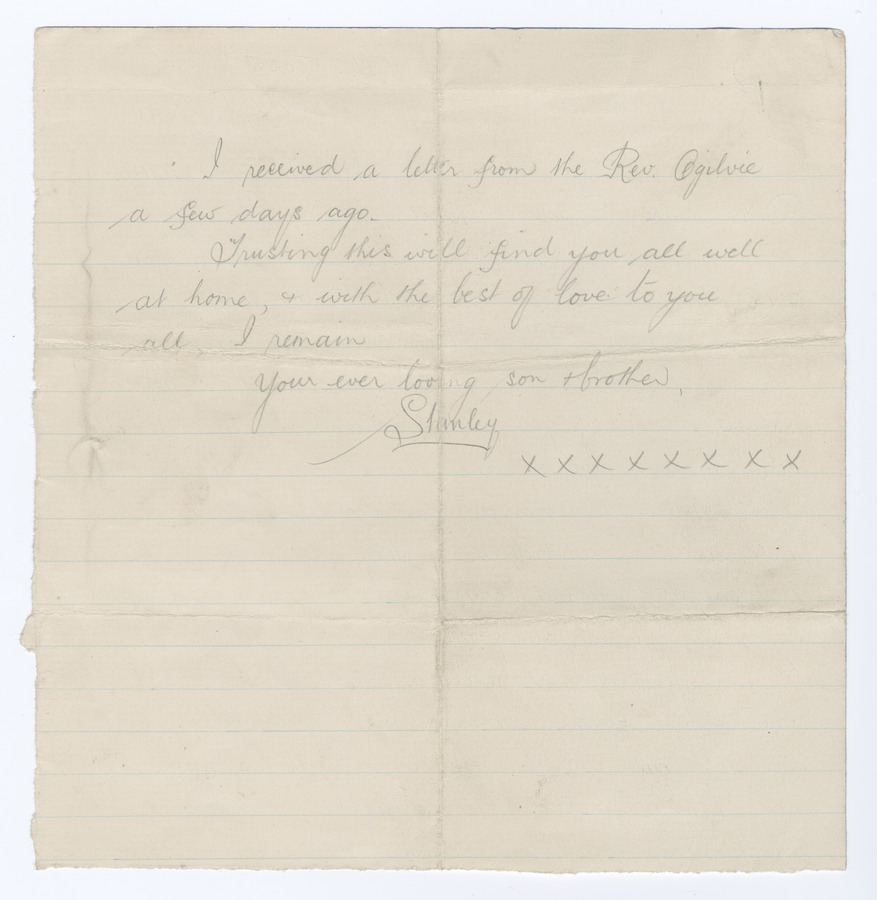 I received a letter from the Rev. Ogilvie
a few days ago.
Trusting this will find you all well
at home, & with the best of love to you
all, I remain
Your ever loving son & brother,
Stanley
x x x x x x x x